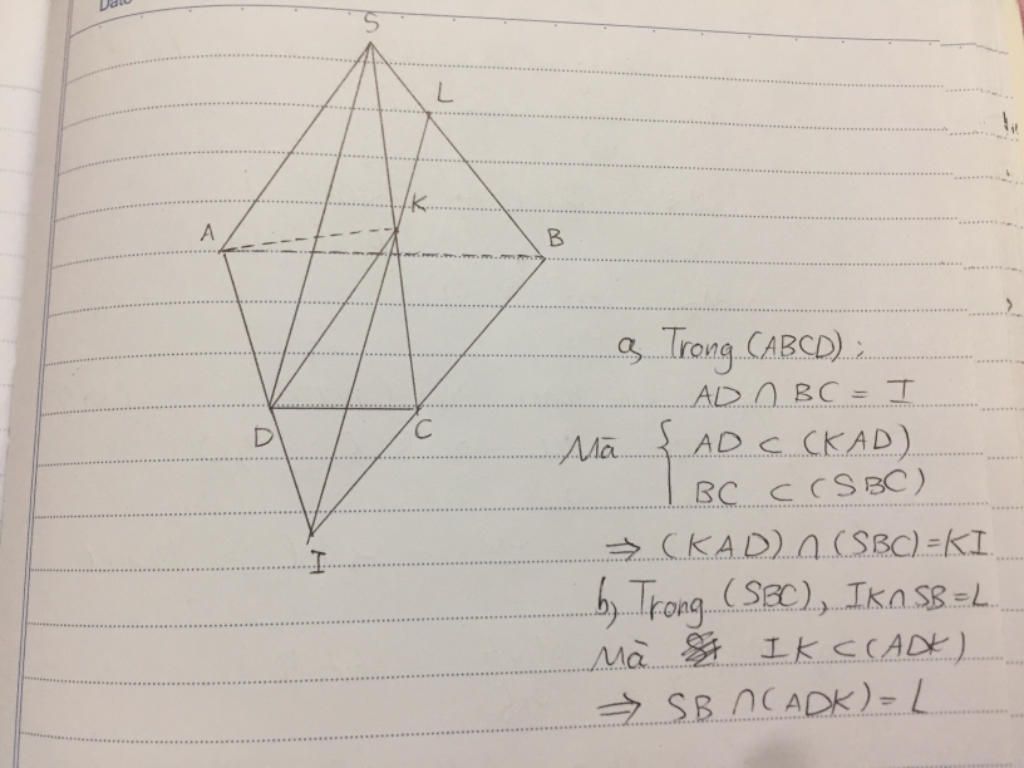 Date
S
L
K
A
B
D
C
I
a, Trong (ABCD):
AD ∩ BC = I
Mà { AD ⊂ (KAD)
BC ⊂ (SBC)
⇒ (KAD) ∩ (SBC) = KI
b, Trong (SBC), IK ∩ SB = L
Mà IK ⊂ (ADK)
⇒ SB ∩ (ADK) = L